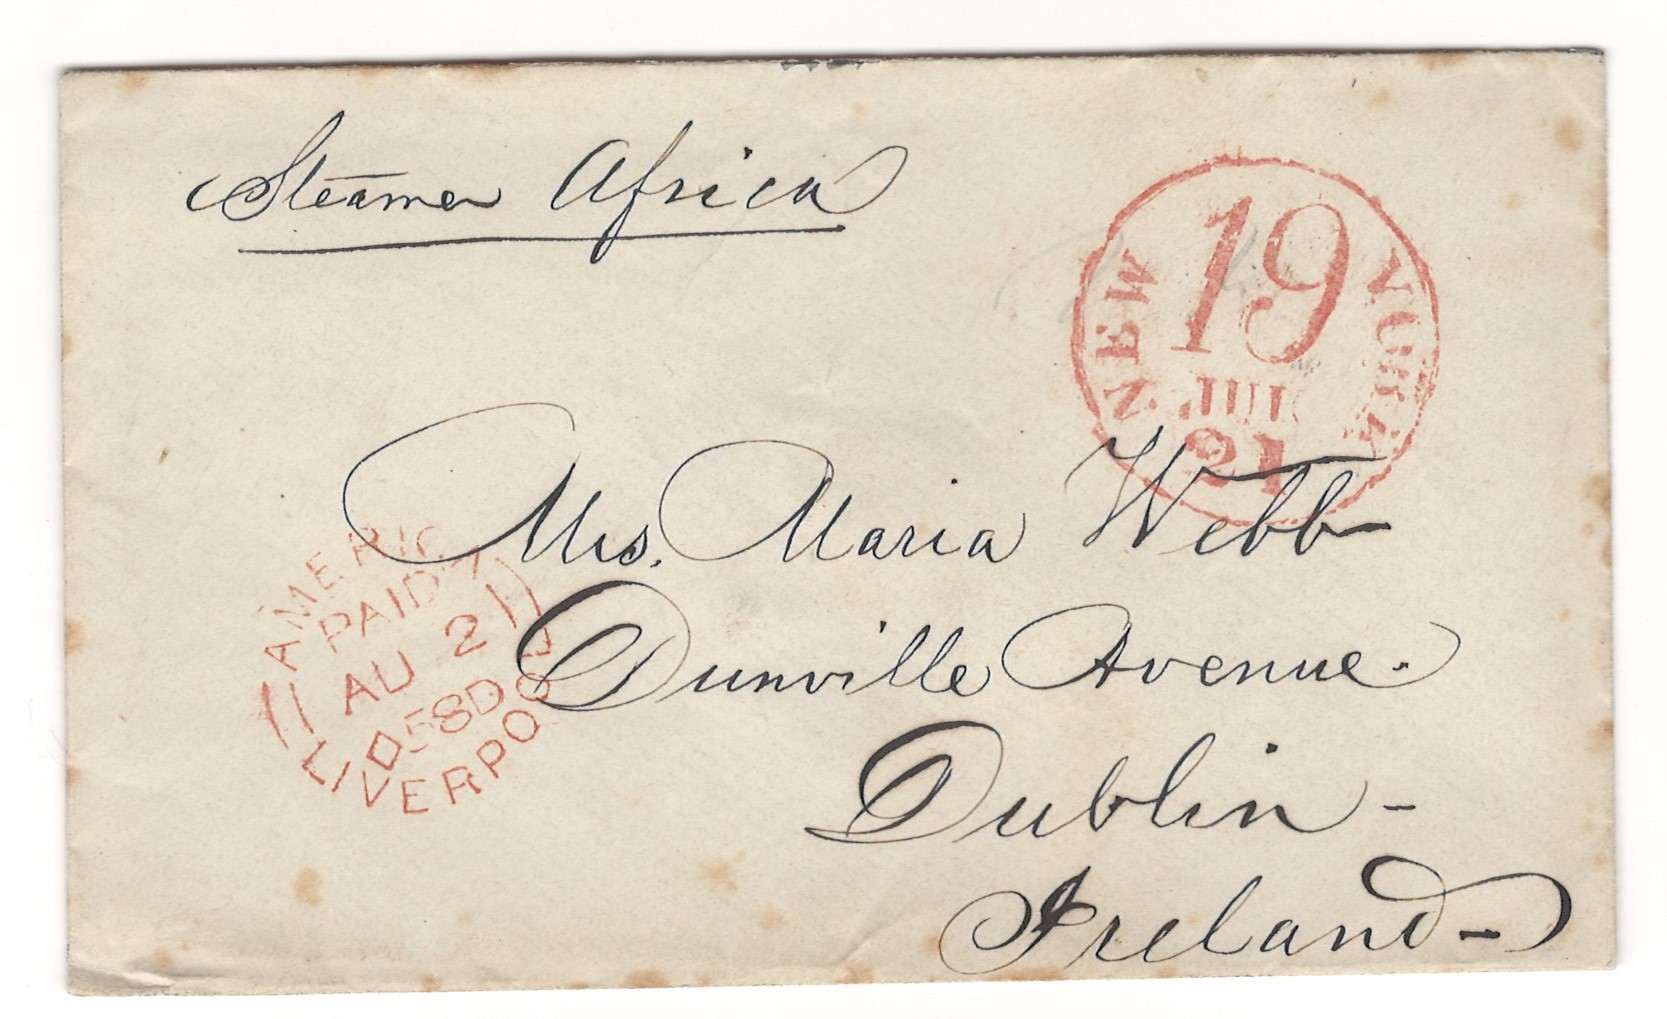 Steamer Africa
NEW YORK
19
JUL
21
Mrs. Maria Webb
Dunville Avenue.
Dublin -
Ireland -
AMERICA
PAID
AU 2
58 D
LIVERPOOL